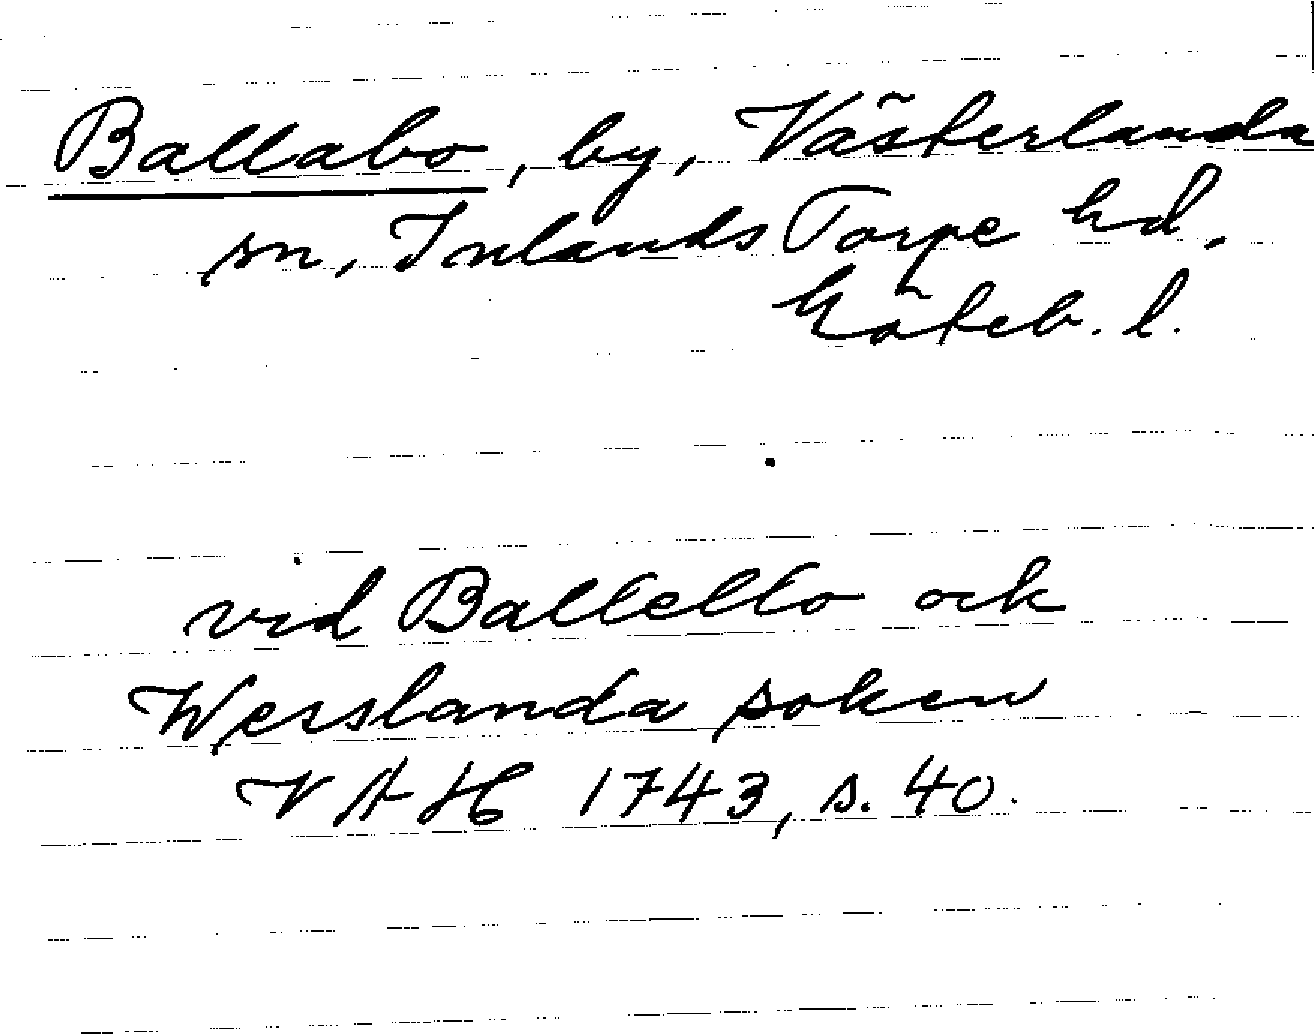 Ballabo, by, Västerlanda
sn, Inlands Torpe hd,
Göteb. l.
vid Ballebo ock
Wesslanda soken
VAH 1743, s. 40.